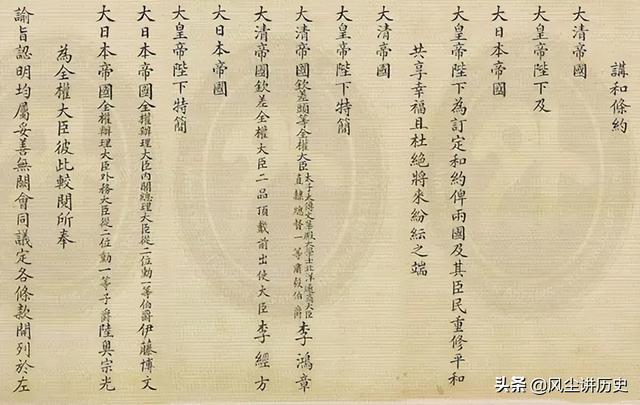 講和條約
大清帝國
大皇帝陛下及
大日本帝國
大皇帝陛下為訂定和約俾兩國及其臣民重修平和
共享幸福且杜絕將來紛紜之端
大清帝國
大皇帝陛下特簡
大清帝國欽差頭等全權大臣太子太傅文華殿大學士北洋通商大臣直隸總督一等肅毅伯爵李鴻章
大清帝國欽差全權大臣二品頂戴前出使大臣李經方
大日本帝國
大皇帝陛下特簡
大日本帝國全權辦理大臣內閣總理大臣從二位勳一等伯爵伊藤博文
大日本帝國全權辦理大臣外務大臣從二位勳一等子爵陸奧宗光
為全權大臣彼此較閱所奉
諭旨認明均屬妥善無闕會同議定各條款開列於左
头条 @风尘讲历史